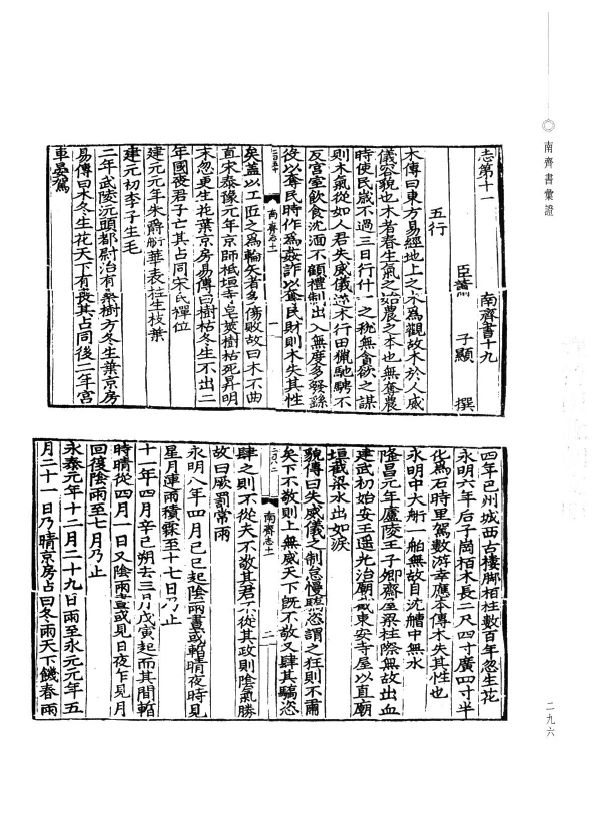 南齊書彙證
志第十一　南齊書十九
臣蕭　子顯　撰
五行
木傳曰東方易經地上之木爲觀故木於人威
儀容貌也木者春生氣之始農之本也無奪農
時使民歲不過三日行什一之稅無貪欲之謀
則木氣從如人君失威儀逆木行田獵馳騁不
反宮室飲食沈湎不顧禮制出入無度多發繇
役以奪民時作爲姦詐以奪民財則木失其性
南齊志十一
一
矣蓋以工匠之爲輪矢者多傷敗故曰木不曲
直宋泰豫元年京師祗垣寺皁莢樹枯死昇明
末忽更生花葉京房易傳曰樹枯冬生不出二
年國喪君子亡其占同宋氏禪位
建元元年朱爵航華表柱生枝葉
建元初李子生毛
二年武陵沅頭都尉治有桑樹方冬生葉京房
易傳曰木冬生花天下有喪其占同後二年宮
車晏駕
四年巴州城西古樓脚栢柱數百年忽生花
永明六年石子崗栢木長二尺四寸廣四寸半
化爲石時車駕數游幸應本傳木失其性也
永明中大航一舶無故自沈艚中無水
隆昌元年廬陵王子卿齋屋梁柱際無故出血
建武初始安王遙光治廟截東安寺屋以直廟
垣截梁水出如淚
貌傳曰失威儀之制怠慢驕恣謂之狂則不肅
矣下不敬則上無威天下旣不敬又肆其驕恣
南齊志十一
二
肆之則不從夫不敬其君不從其政則陰氣勝
故曰厥罰常雨
永明八年四月己巳起陰雨晝或暫晴夜時見
星月連雨積霖至十七日乃止
十一年四月辛巳朔去三月戊寅起而其間暫
時晴從四月一日又陰雨晝或見日夜乍見月
回復陰雨至七月乃止
永泰元年十二月二十九日雨至永元元年五
月二十一日乃晴京房占曰冬雨天下饑春雨
二九六